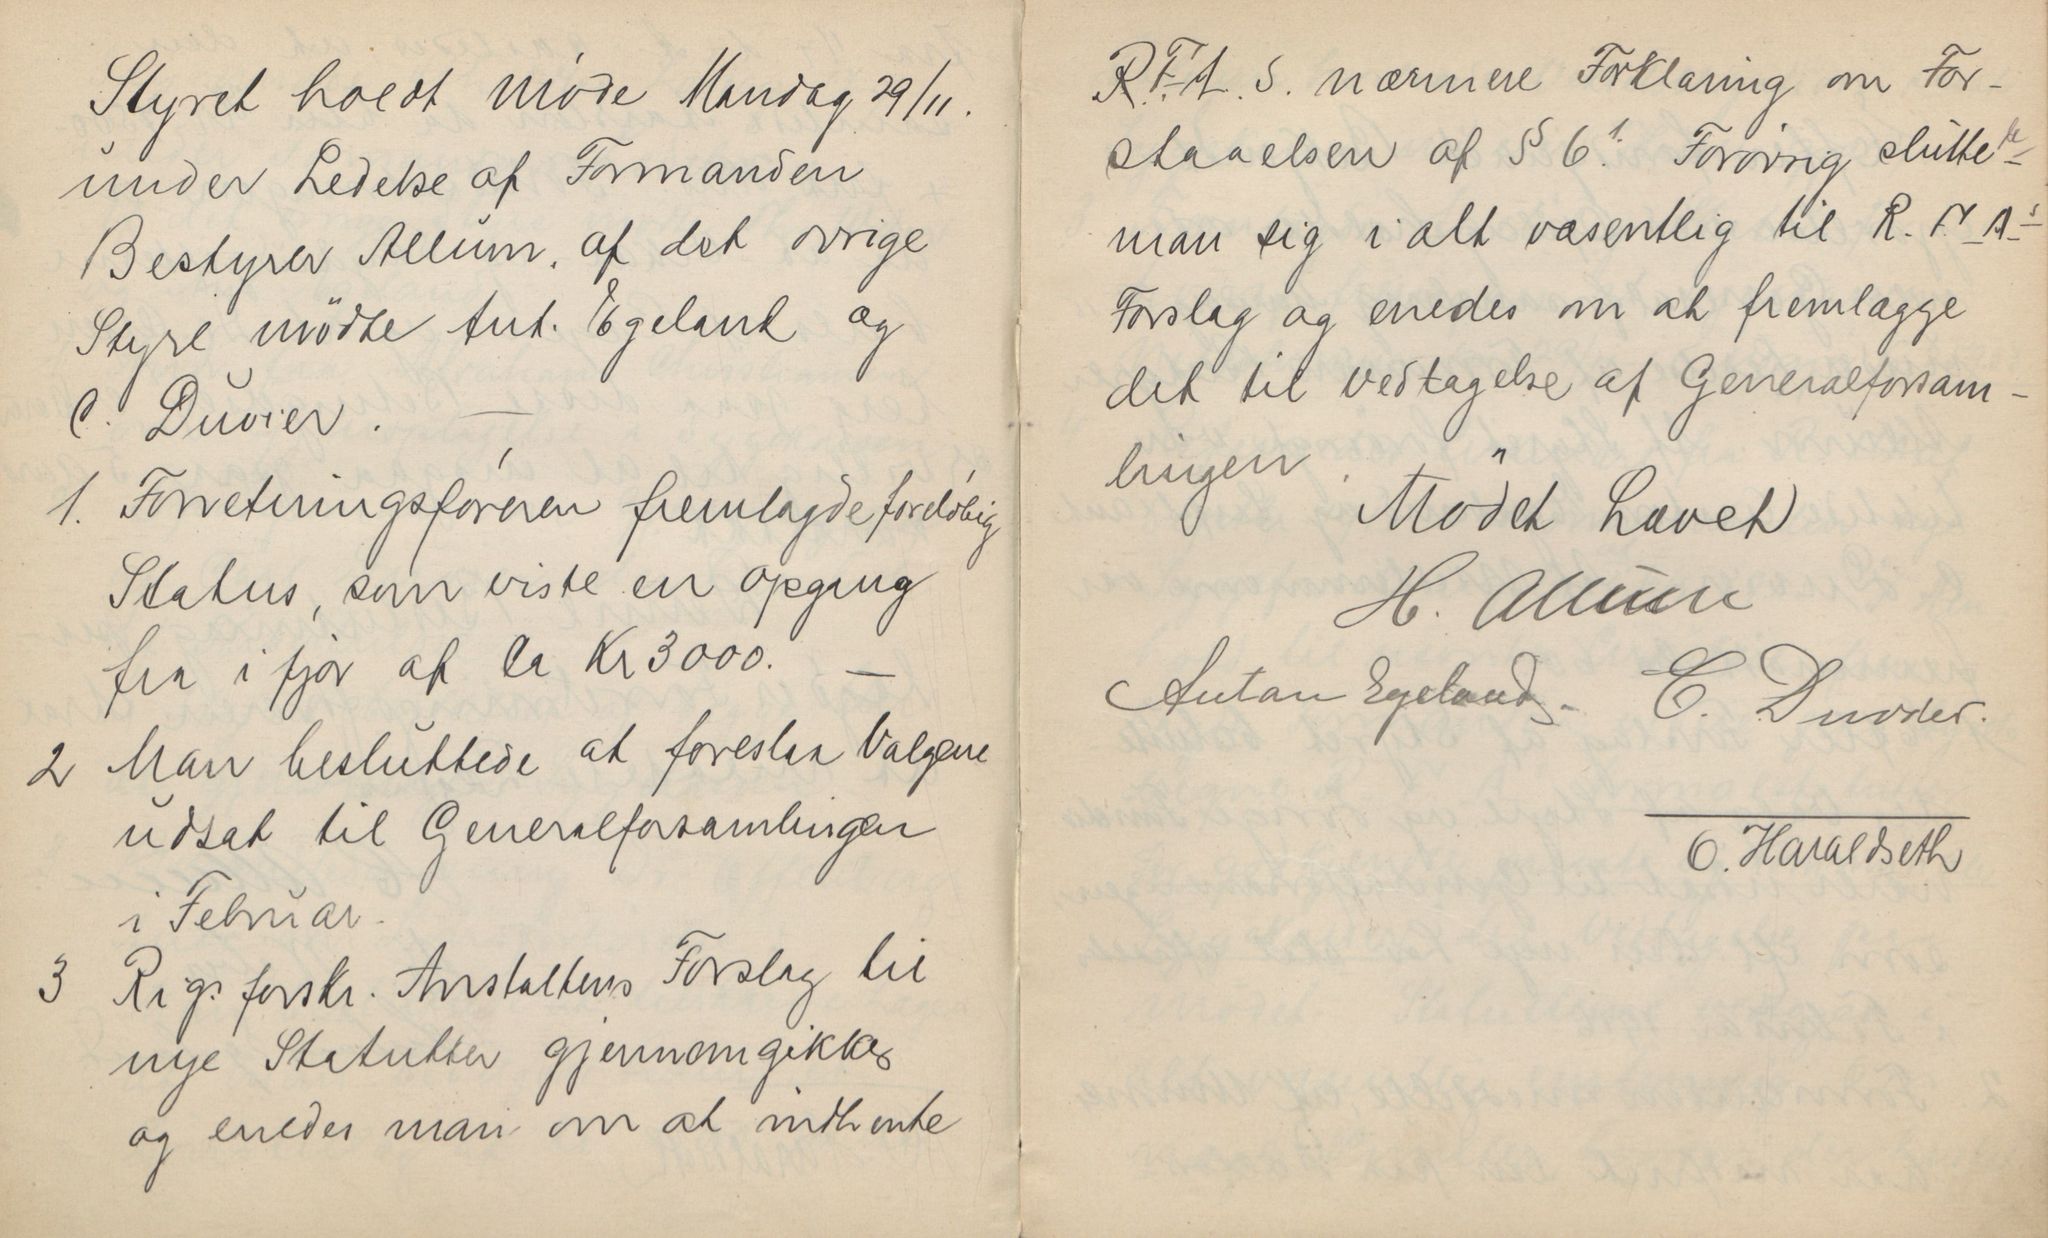 Styret holdt møde Mandag 29/11.
under Ledelse af Formanden
Bestyrer Allum. af det øvrige
Styre mödte Ant. Egeland og
C. Duvier. —
1. Forretningsføreren fremlagde foreløbig
Status, som viste en opgang
fra i fjor af Ca Kr 3000. —
2 Man besluttede at foreslaa Valgene
udsat til Generalforsamlingen
i Februar.
3 Rigsforsk. Anstaltens Forslag til
nye Statutter gjennomgikkes
og enedes man om at indhente
R.F.A.s. nærmere Forklaring om For-
staaelsen af § 6¹. Forøvrig sluttede
man sig i alt væsentlig til R.F.A.s
Forslag og enedes om at fremlægge
det til vedtagelse af Generalforsam-
lingen.
Mödet hævet
H. Allum
Anton Egeland. C. Duvier.
O. Haraldseth